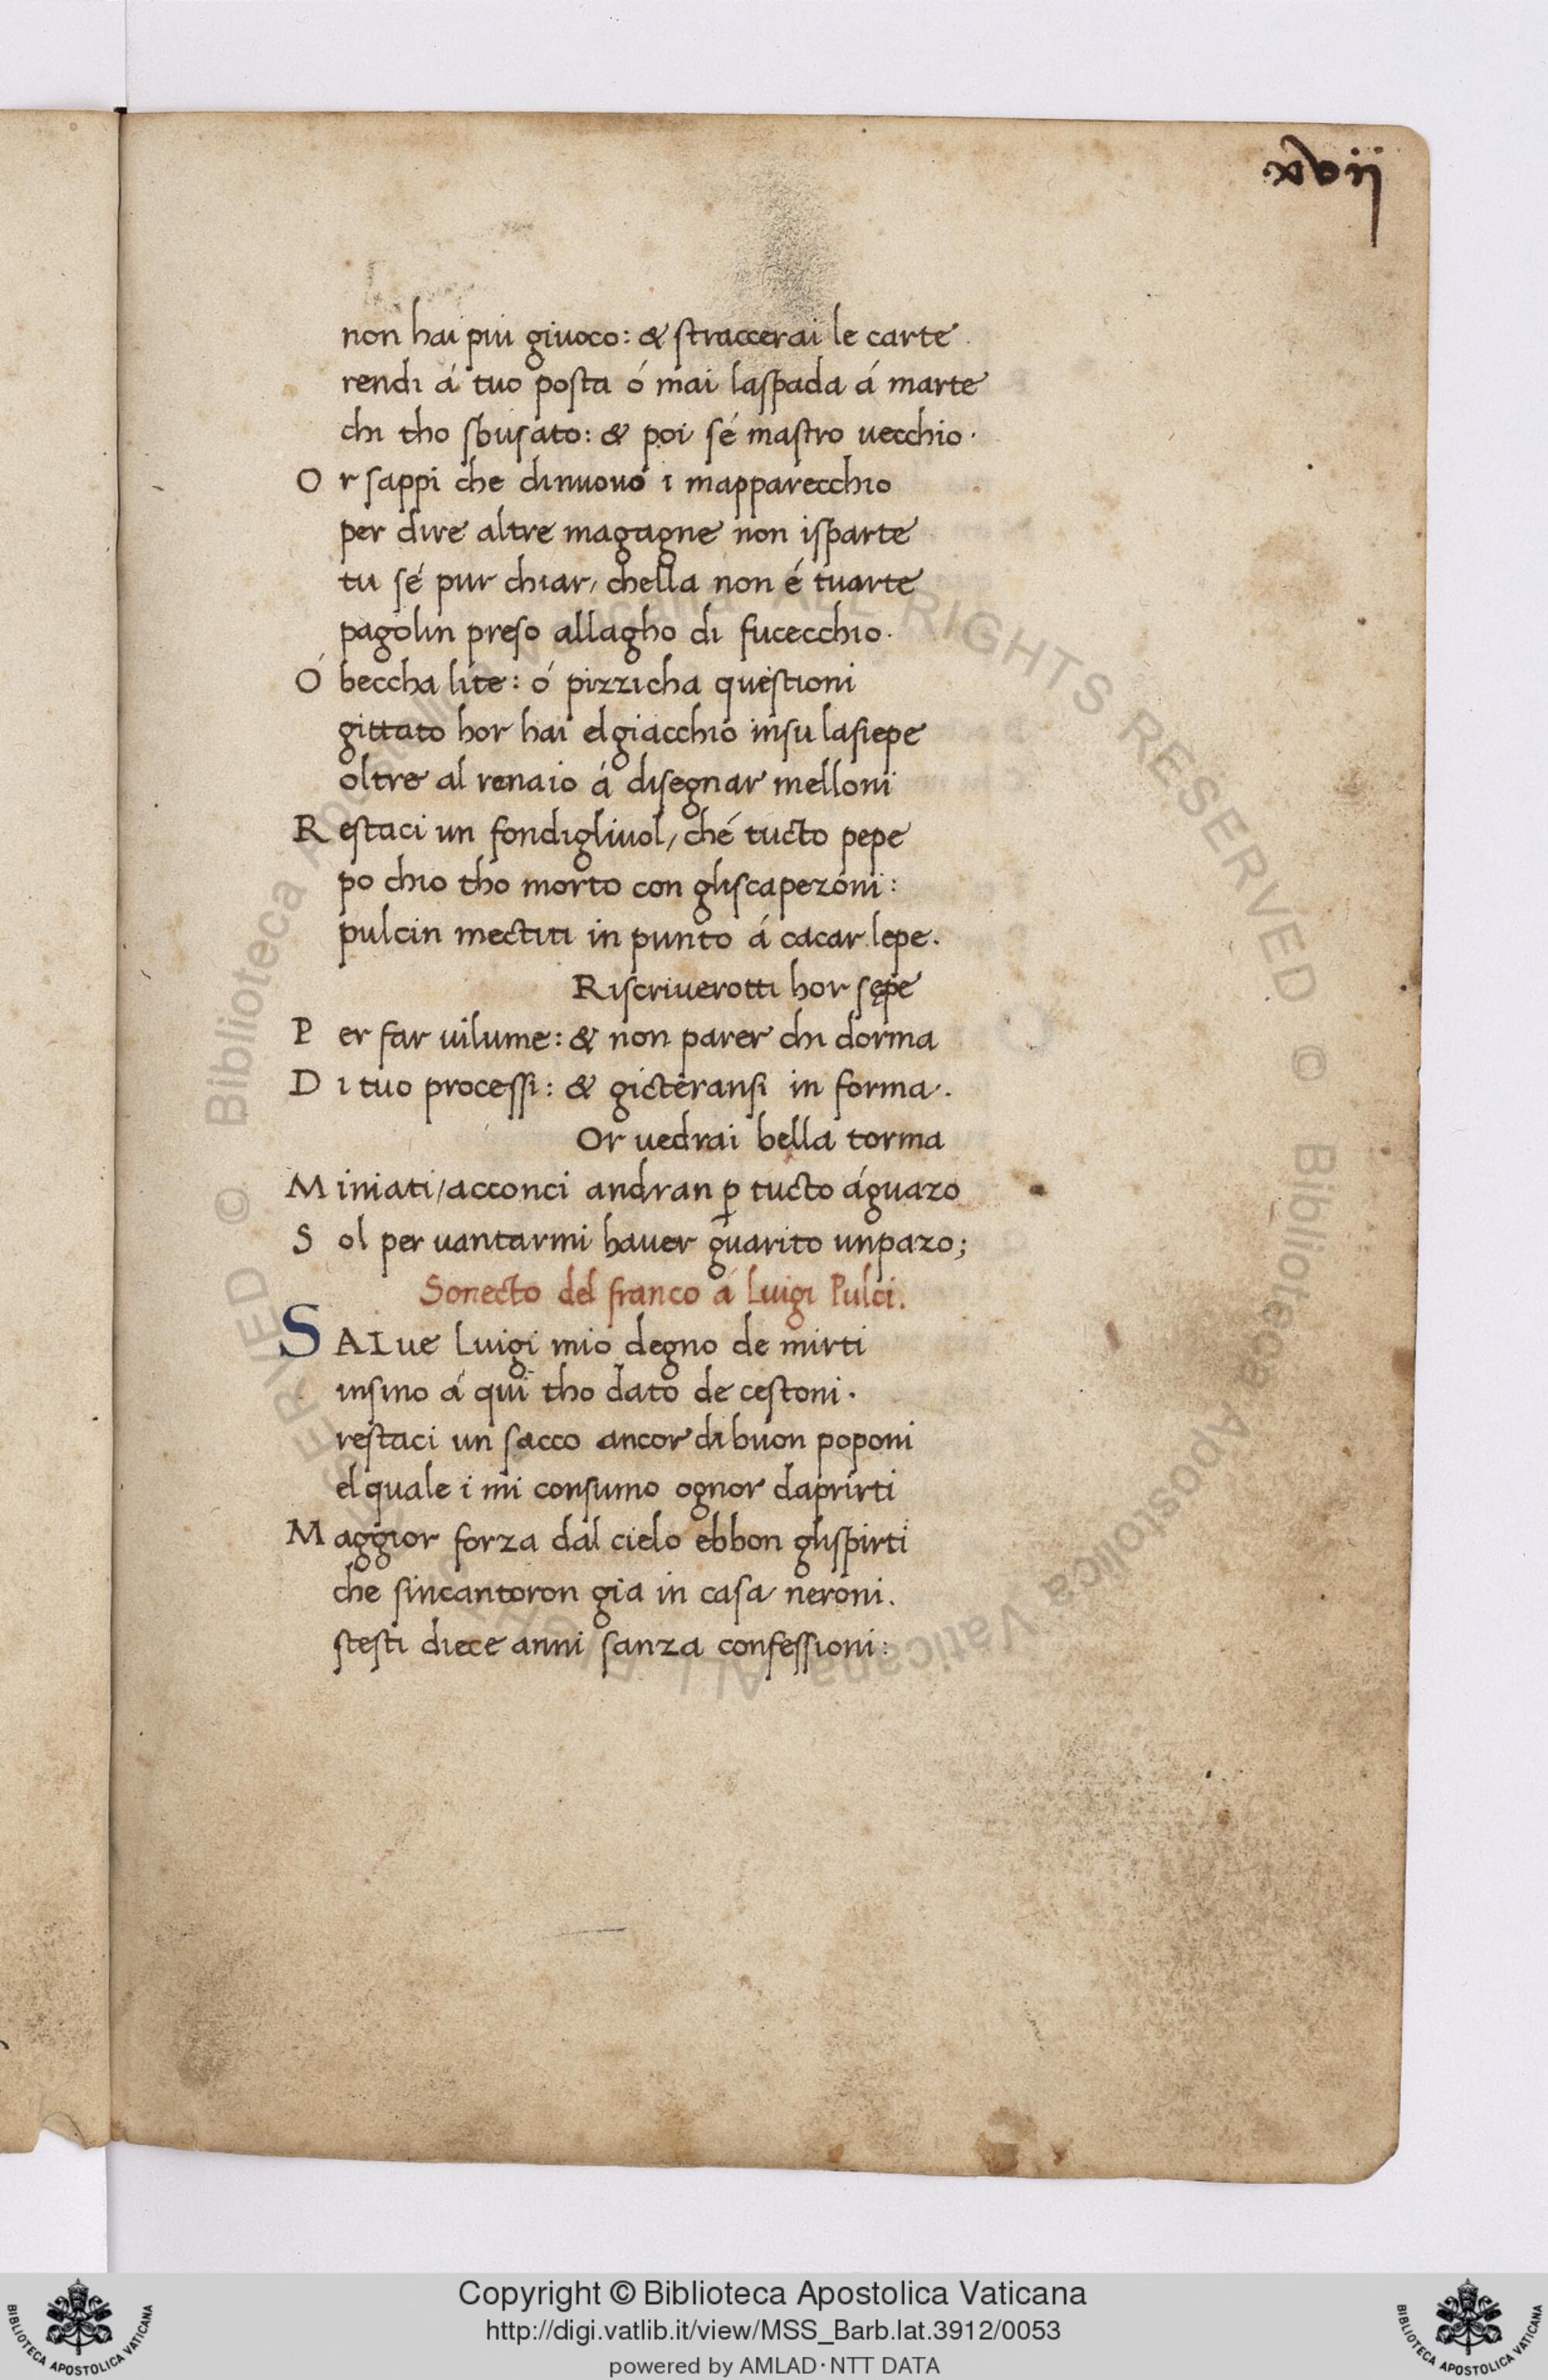 xvii
non hai piu giuoco: & straccerai le carte
rendi á tuo posta ó mai laspada á marte
chi tho sbusato: & poi sé mastro vecchio.
Or sappi che dinuouo i mapparecchio
per dire altre magagne non isparte
tu sé pur chiar, chella non é tuarte
pagolin preso allagho di fucecchio.
Ó beccha lite: ó pizzicha questioni
gittato hor hai elgiacchio insu lasiepe
oltre al renaio á disegnar melloni
Restaci un fondigliuol, ché tucto pepe
po chio tho morto con gliscapezoni:
pulcin mectiti in punto á cacar lepe.
Riscriverotti hor sępe
Per far uilume: & non parer chi dorma
Di tuo processi: & gicteransi in forma.
Or uedrai bella torma
Miniati, acconci andran ꝑ tucto águazo
Sol per uantarmi hauer guarito unpazo;
Sonecto del franco á Luigi Pulci.
SALue Luigi mio degno de mirti
insino á qui tho dato de cestoni.
restaci un sacco ancor di buon poponi
el quale i mi consumo ognor daprirti
Maggior forza dal cielo ebbon glispirti
che sincantoron gia in casa neroni.
stesti diece anni sanza confessioni:
© Biblioteca Apostolica Vaticana ALL RIGHTS RESERVED © Biblioteca Apostolica Vaticana ALL RIGHTS RESERVED
Copyright © Biblioteca Apostolica Vaticana
http://digi.vatlib.it/view/MSS_Barb.lat.3912/0053
powered by AMLAD·NTT DATA
BIBLIOTECA APOSTOLICA VATICANA
BIBLIOTECA APOSTOLICA VATICANA